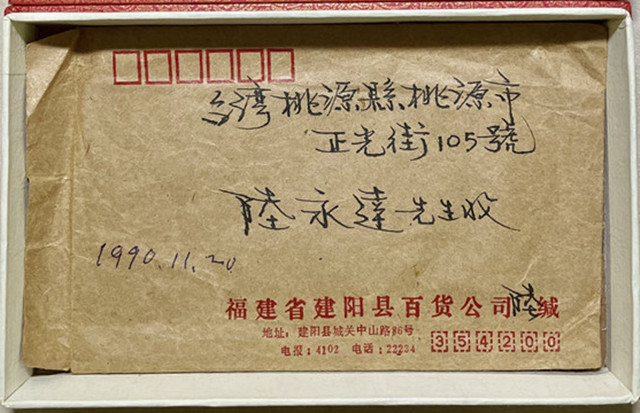 台灣桃源縣桃源市
正光街105號
陸永達先生收
1990.11.20
福建省建阳县百货公司陸缄
地址：建阳县城关中山路86号
电报：4102 电话：22234
354200